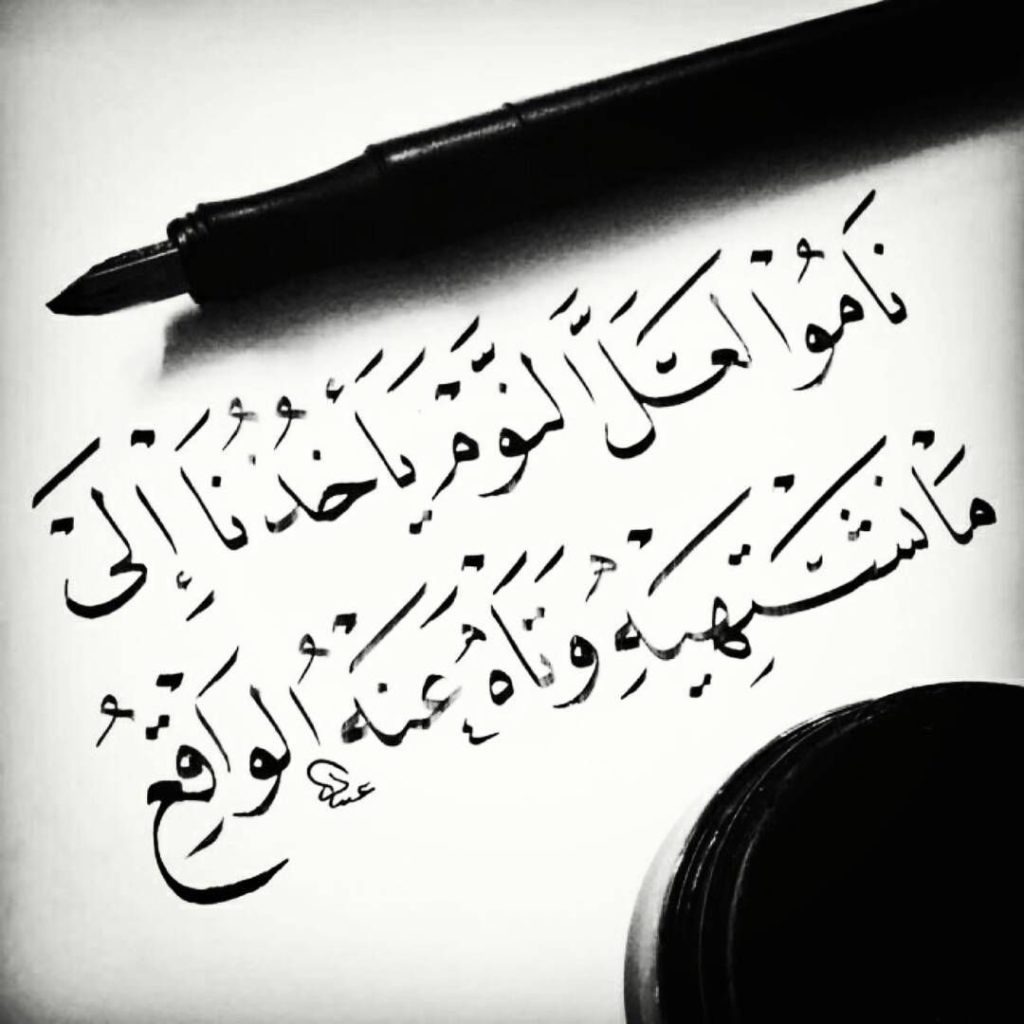 نَامُوْا لَعَلَّ النَّوْمَ يَأْخُذُنَا إِلَىْ
مَاْ نَشْتَهِيْهِ وَتَاْهَ عَنْهُ الْوَاقِعُ